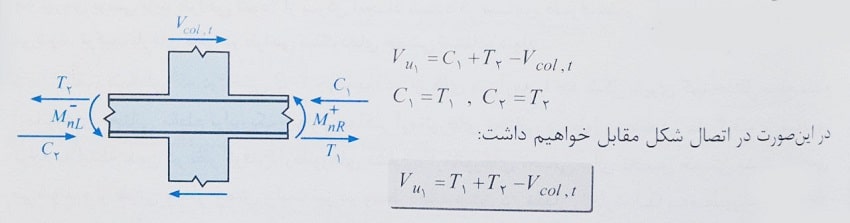 V_{col,t}
T_۲
M_{nL}^{-}
C_۲
C_۱
M_{nR}^{+}
T_۱
V_{u_۱} = C_۱ + T_۲ - V_{col,t}
C_۱ = T_۱ , C_۲ = T_۲
در این‌صورت در اتصال شکل مقابل خواهیم داشت:
V_{u_۱} = T_۱ + T_۲ - V_{col,t}